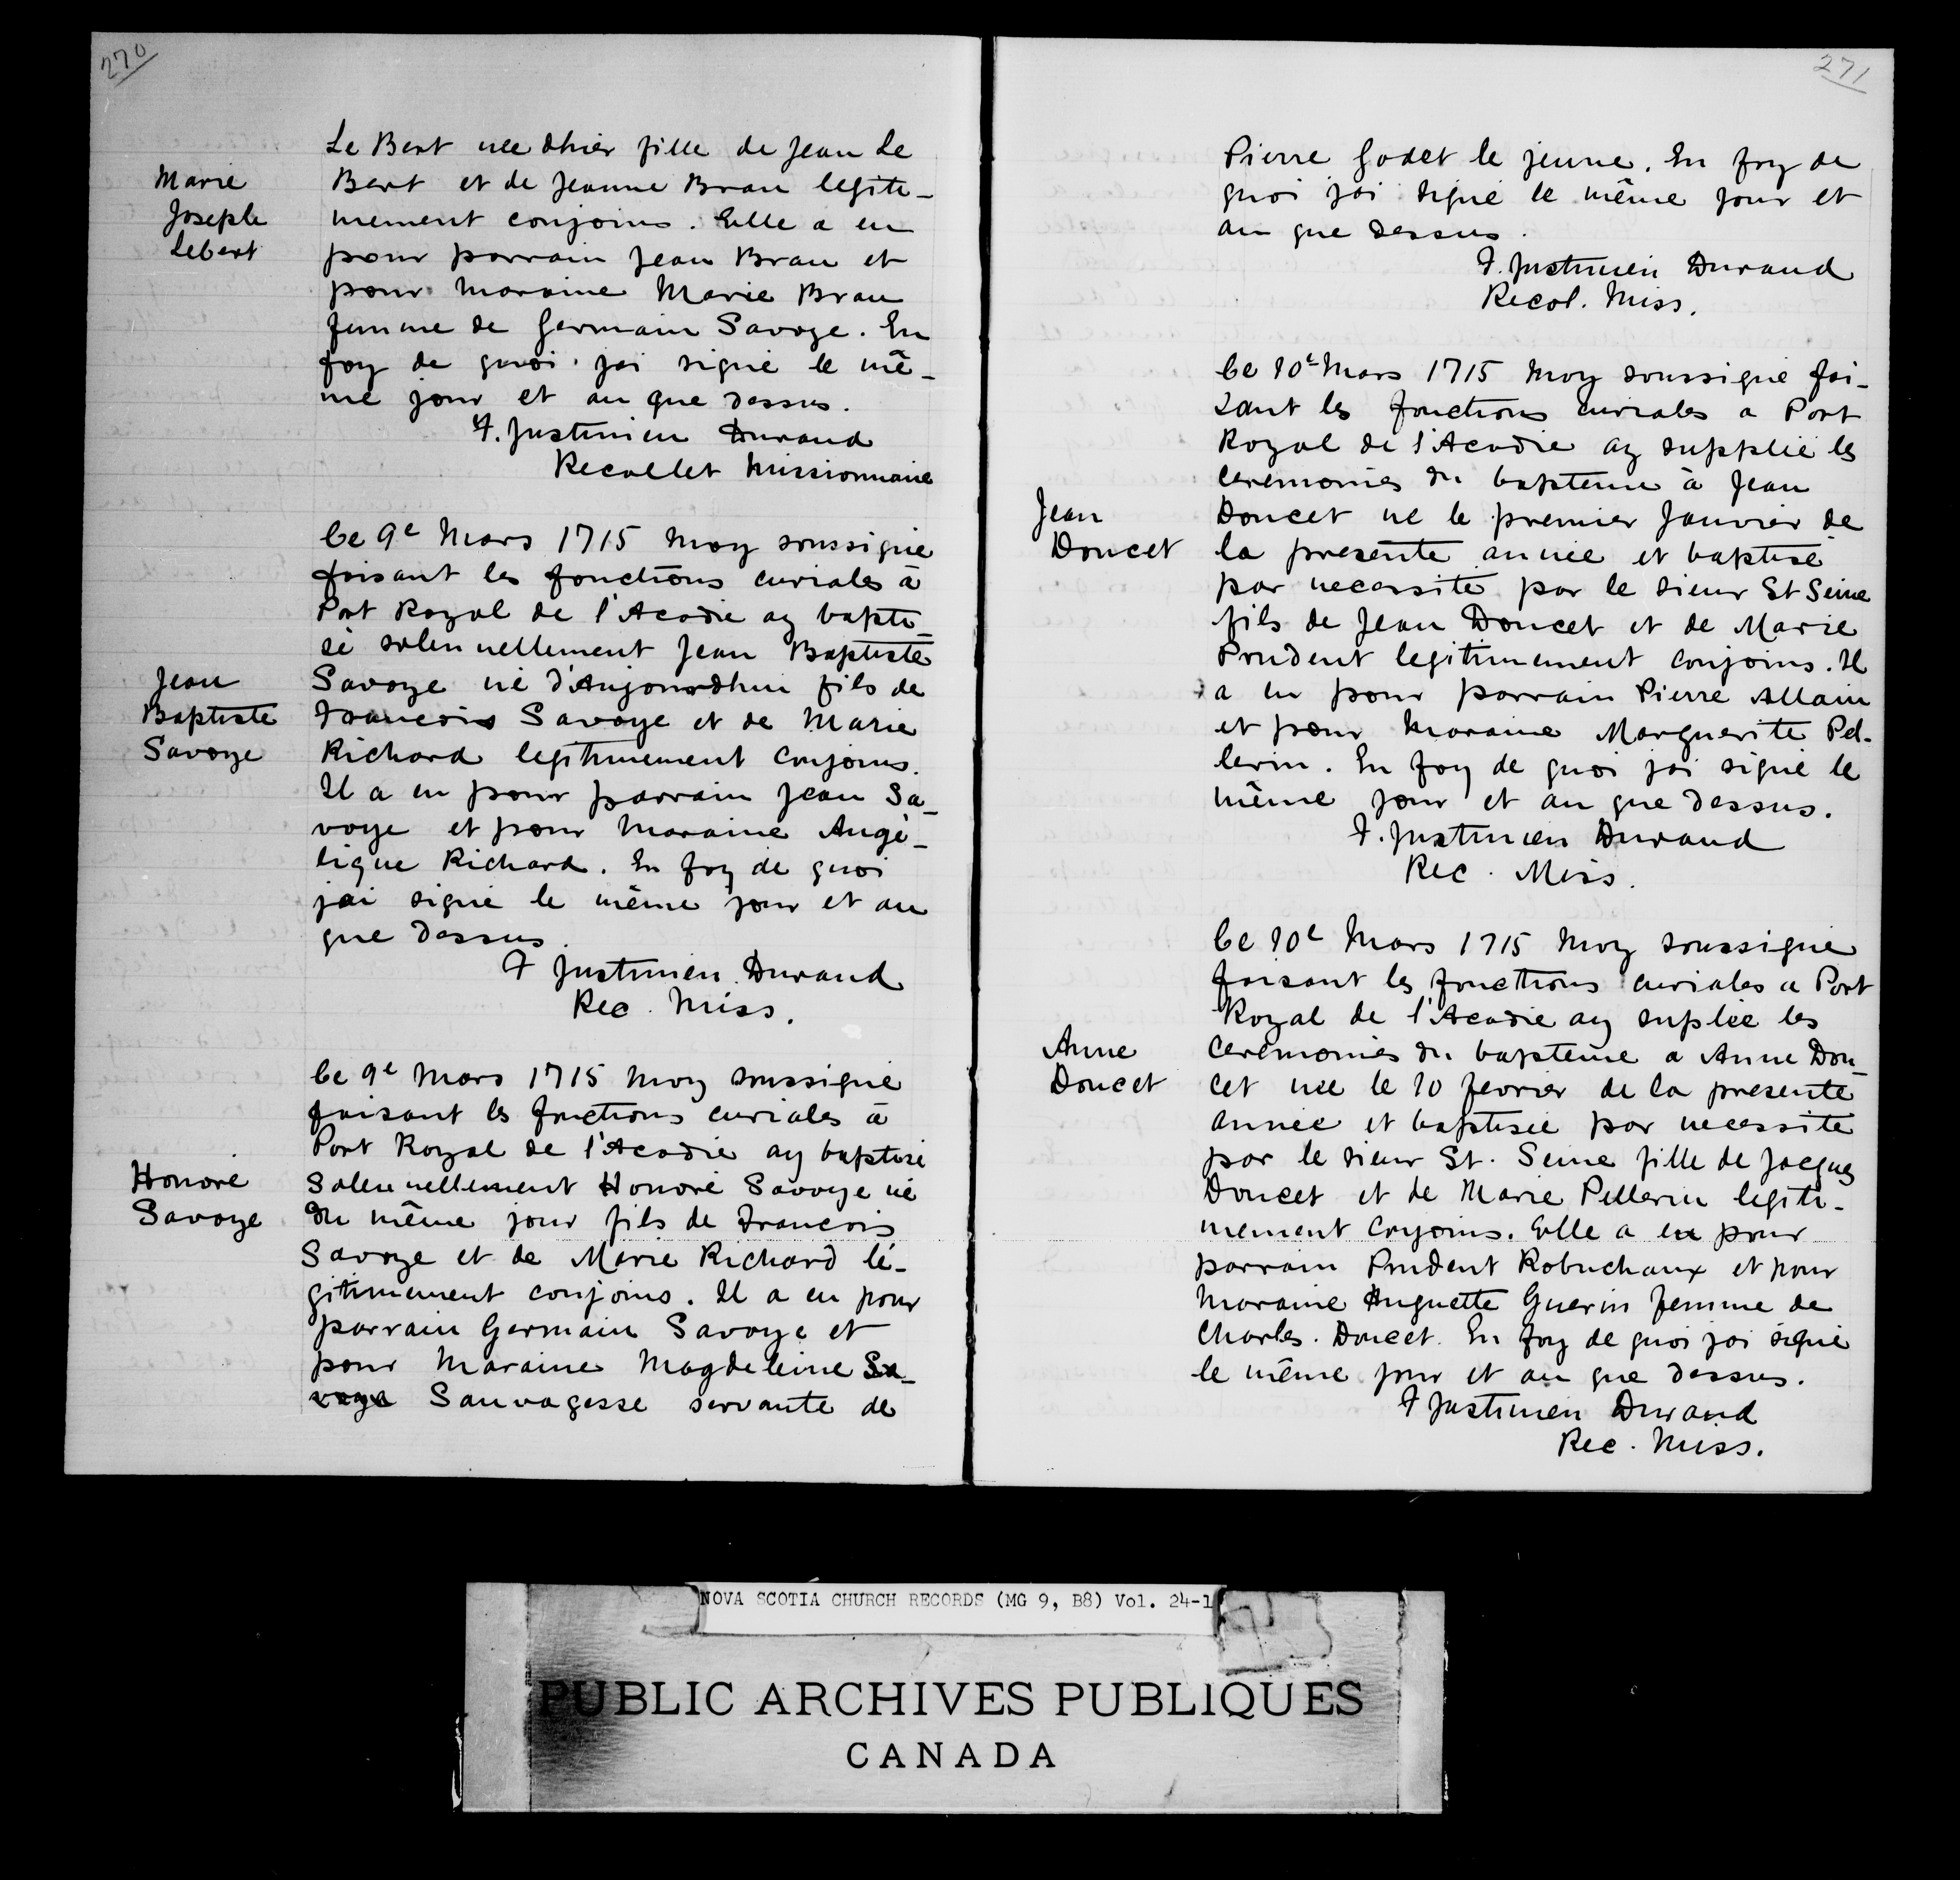 270
Le Bert née d'hier fille de Jean Le
Marie
Joseple
Lebert
Bert et de Jeanne Brau legiti-
mement conjoins. Elle a eu
pour parrain Jean Brau et
pour maraine Marie Brau
femme de Germain Savoye. En
foy de quoi jai signé le mê-
me jour et an que dessus.
F. Justinien Durand
Recollet Missionnaire
Ce 9e Mars 1715 moy soussigné
faisant les fonctions curiales à
Port Royal de l'Acadie ay bapti-
sé solennellement Jean Baptiste
Jean
Baptiste
Savoye
Savoye né d'Aujourdhui fils de
Francois Savoye et de Marie
Richard legitimement conjoins.
Il a eu pour parrain Jean Sa-
voye et pour maraine Angé-
lique Richard. En foy de quoi
jai signé le même jour et an
que dessus.
F Justinien Durand
Rec. Miss.
Ce 9e Mars 1715 moy soussigné
faisant les fonctions curiales à
Port Royal de l'Acadie ay baptisé
Honoré
Savoye
solennellement Honoré Savoye né
du même jour fils de Francois
Savoye et de Marie Richard lé-
gitimement conjoins. Il a eu pour
parrain Germain Savoye et
pour maraine Magdeleine Sa-
voye Sauvagesse servante de
271
Pierre Godet le jeune. En foy de
quoi jai signé le même jour et
an que dessus.
F. Justinien Durand
Recol. Miss.
Ce 10e Mars 1715 moy soussigné fai-
sant les fonctions curiales a Port
Royal de l'Acadie ay supplié les
ceremonies du bapteme à Jean
Jean
Doucet
Doucet né le premier Janvier de
la presente année et baptisé
par necessité par le sieur St Seine
fils de Jean Doucet et de Marie
Prudent legitimement conjoins. Il
a eu pour parrain Pierre Allain
et pour maraine Marguerite Pel-
lerin. En foy de quoi jai signé le
même jour et an que dessus.
F. Justinien Durand
Rec. Miss.
Ce 10e Mars 1715 moy soussigné
faisant les fonctions curiales a Port
Royal de l'Acadie ay supléé les
Anne
Doucet
ceremonies du bapteme a Anne Dou-
cet née le 10 fevrier de la presente
année et baptisée par necessité
par le sieur St. Seine fille de Jacques
Doucet et de Marie Pellerin legiti-
mement conjoins. Elle a eu pour
parrain Prudent Robuchaux et pour
maraine Huguette Guerin femme de
Charles. Doucet. En foy de quoi jai signé
le même jour et an que dessus.
F Justinien Durand
Rec. Miss.
NOVA SCOTIA CHURCH RECORDS (MG 9, B8) Vol. 24-1
PUBLIC ARCHIVES PUBLIQUES
CANADA